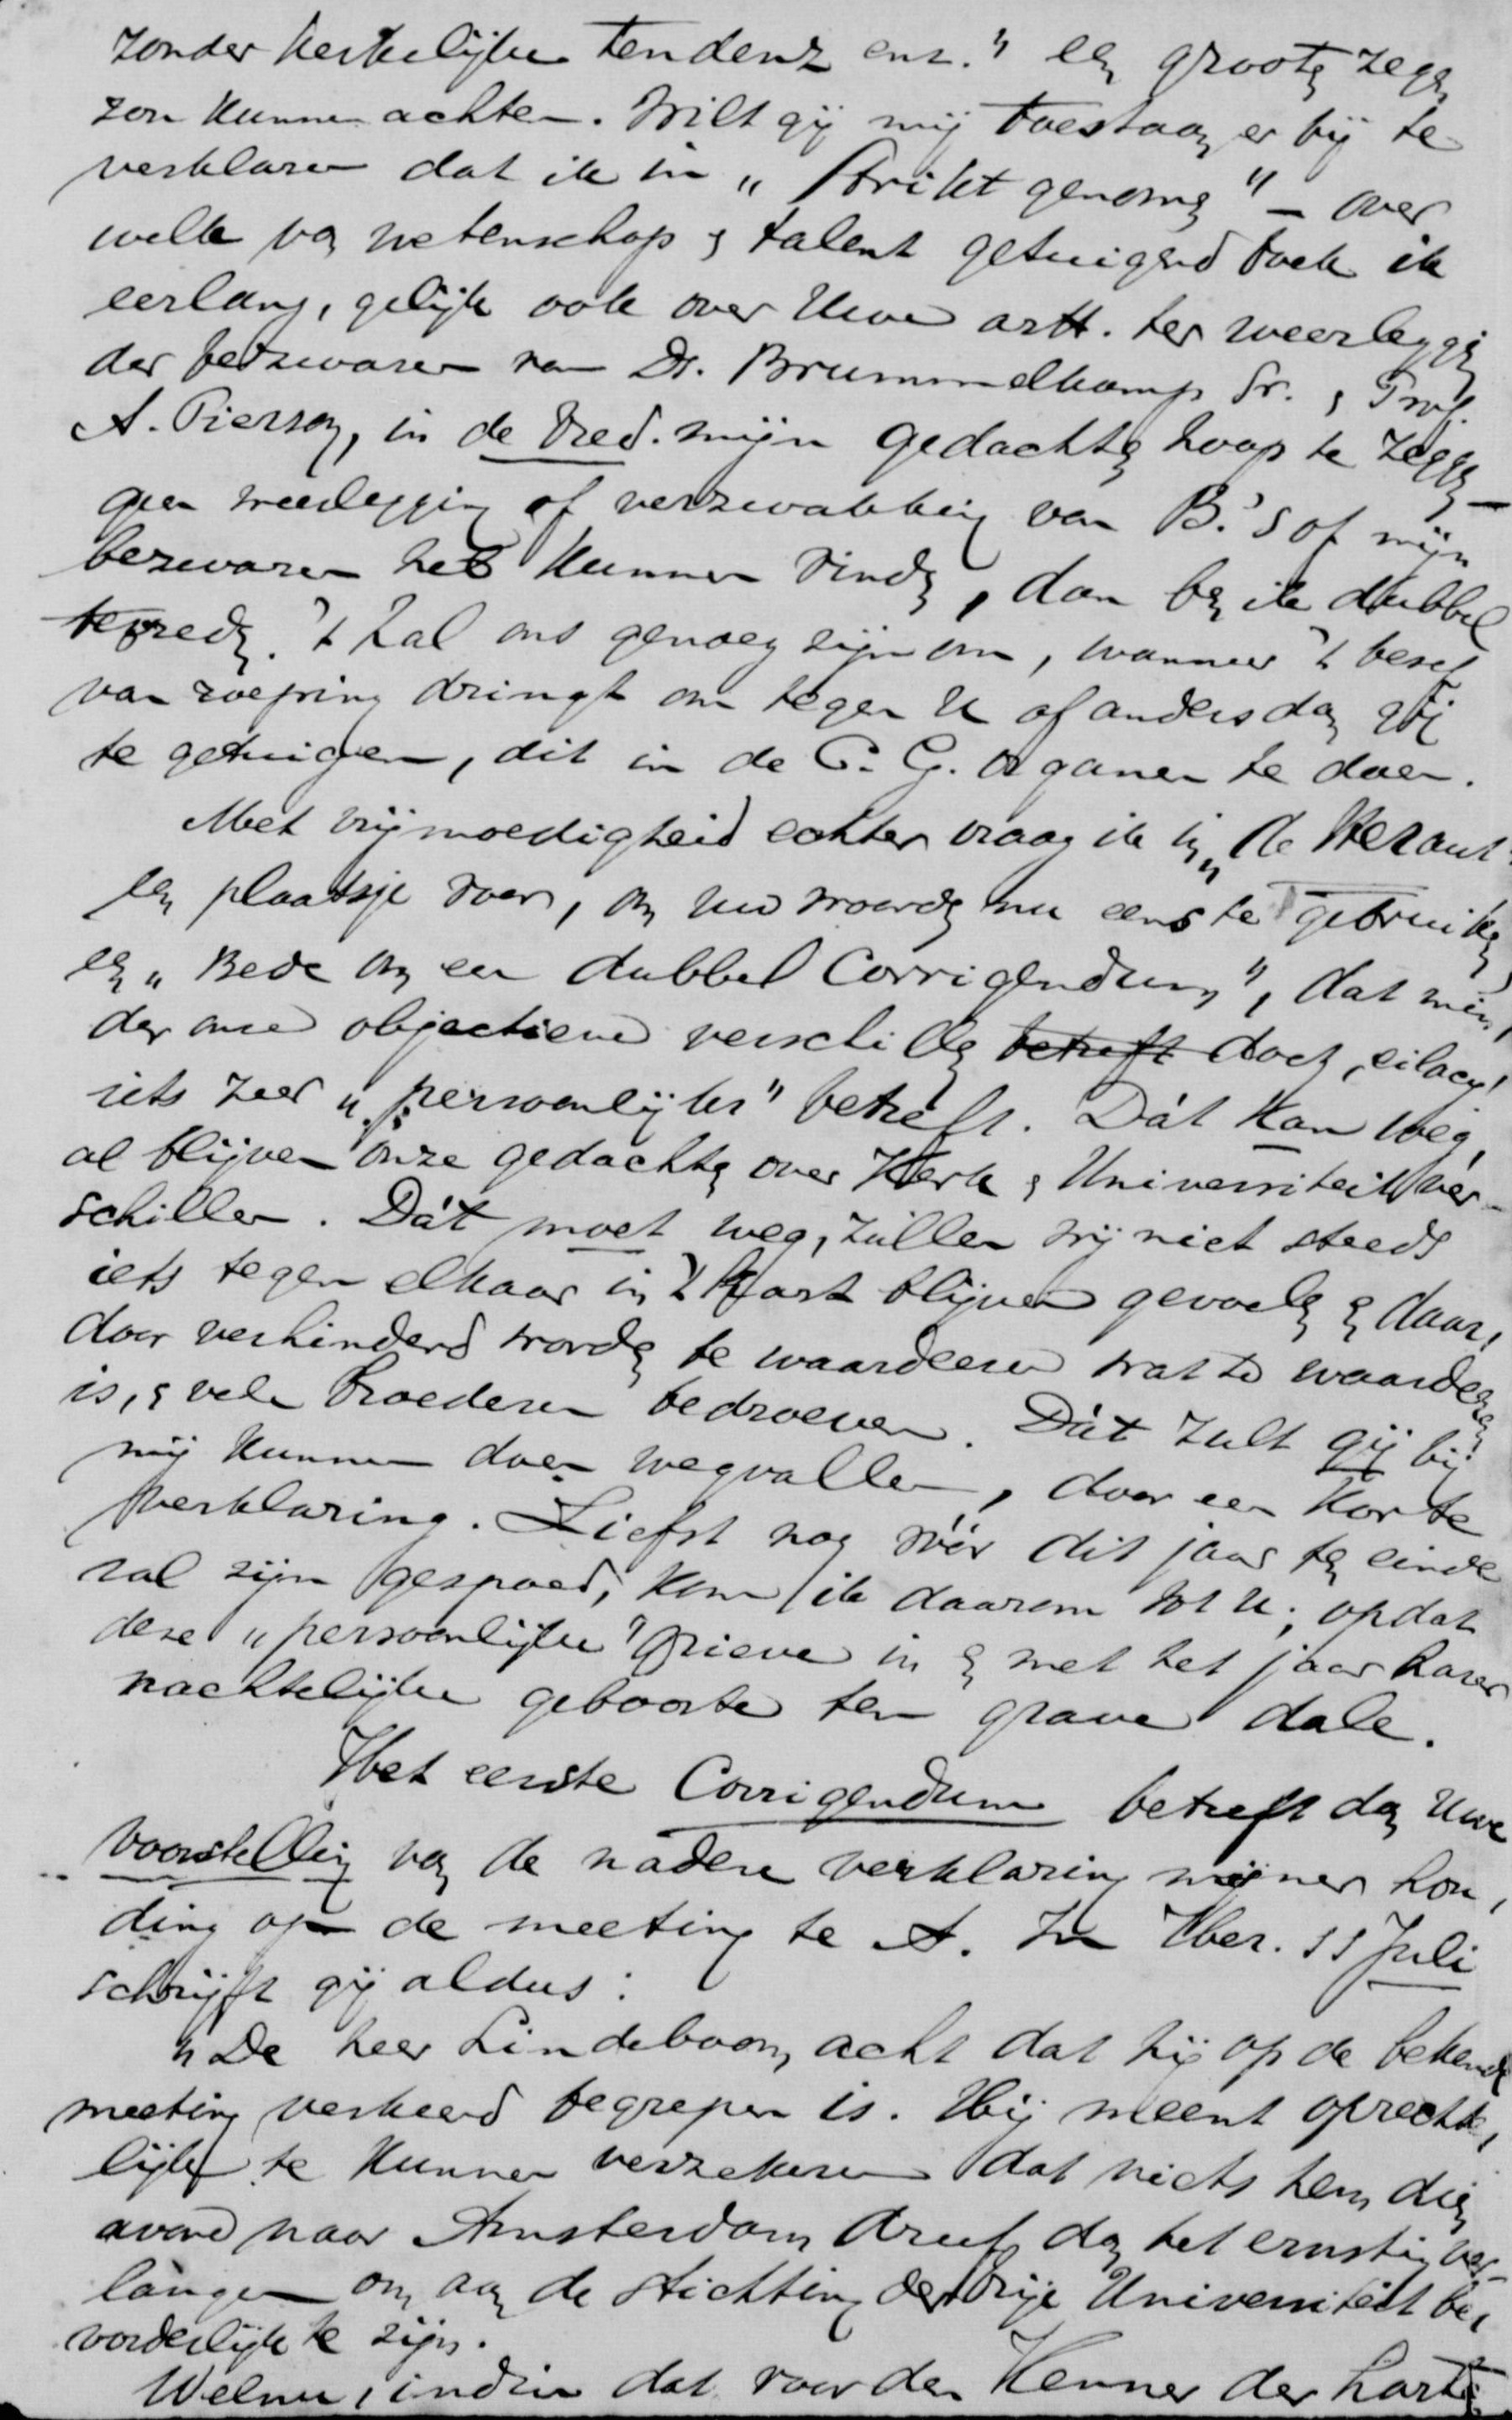 zonder kerkelijke tendenz enz." een grooten zegen
zou kunnen achten. Wilt gij mij toestaan er bij te
verklaren dat ik in „Strikt genomen" – over
welk van wetenschap & talent getuigend boek ik
eerlang, gelijk ook over Uwe artt. ter weerlegging
der bezwaren van Ds. Brummelkamp Sr. & Prof.
A. Pierson, in de Bred. mijn gedachten hoop te zeggen –
geen weerlegging of verzwakking van B.'s of mijn
bezwaren heb kunnen vinden, dan ben ik dubbel
tevreden. 't Zal ons genoeg zijn om, wanneer 't besef
van roeping dringt om tegen U of anders dan gij
te getuigen, dit in de C. G. organen te doen.
Met vrijmoedigheid echter vraag ik in „de Heraut"
een plaatsje voor, om uw woorden nu eens te gebruiken
een „Bede om een dubbel Corrigendum", dat min,
der onze objectieve verschillen betreft doch, eilacy!
iets zeer „persoonlijks" betreft. Dát kan weg,
al blijven onze gedachten over Kerk & Universiteit ver-
schillen. Dát moet weg, zullen wij niet steeds
iets tegen elkaar in 't hart blijven gevoelen & daar,
door verhinderd worden te waardeeren wat te waardeeren
is, & vele broederen bedroeven. Dát zult gij bij
mij kunnen doen wegvallen, door een korte
verklaring. Liefst nog vóór dit jaar ten einde
zal zijn gespoed, kom ik daarom tot U; opdat
deze „persoonlijke" grieve in & met het jaar harer
nachtelijke geboorte ten grave dale.
Het eerste Corrigendum betreft dan Uwe
voorstelling van de nadere verklaring mijner hou,
ding op de meeting te A. In Her. 11 Juli
schrijft gij aldus:
„De heer Lindeboom acht dat hij op de bekende
meeting verkeerd begrepen is. Hij meent oprechte,
lijk te kunnen verzekeren dat niets hem dien
avond naar Amsterdam dreef dan het ernstig ver-
langen om aan de stichting der Vrije Universiteit be,
vorderlijk te zijn.
Welnu, indien dat voor den Kenner der harten